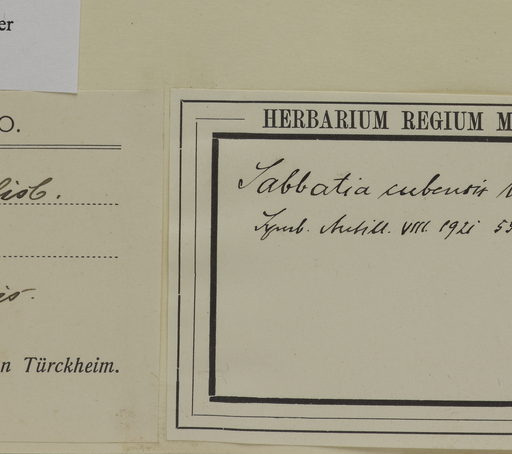 er
O.
lisb.
is.
n Türckheim.
HERBARIUM REGIUM M
Sabbatia cubensis
Symb. Antill. VIII. 1921 55